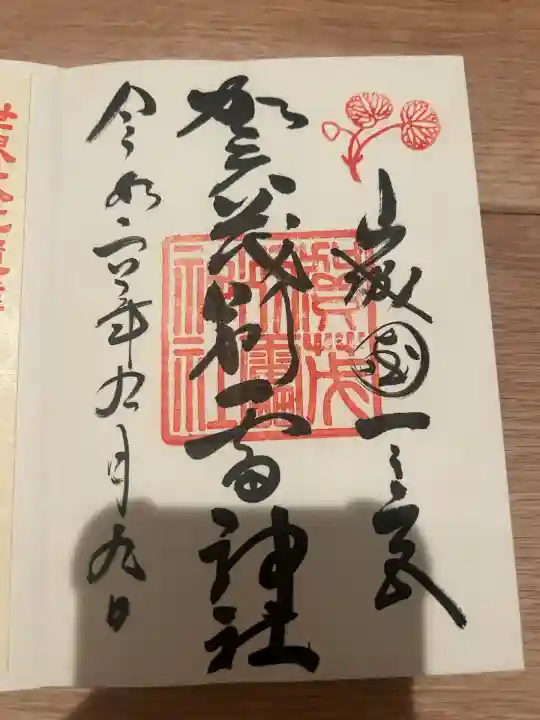 山城國一之宮
賀茂別雷神社
令和六年九月九日
賀茂別雷神社